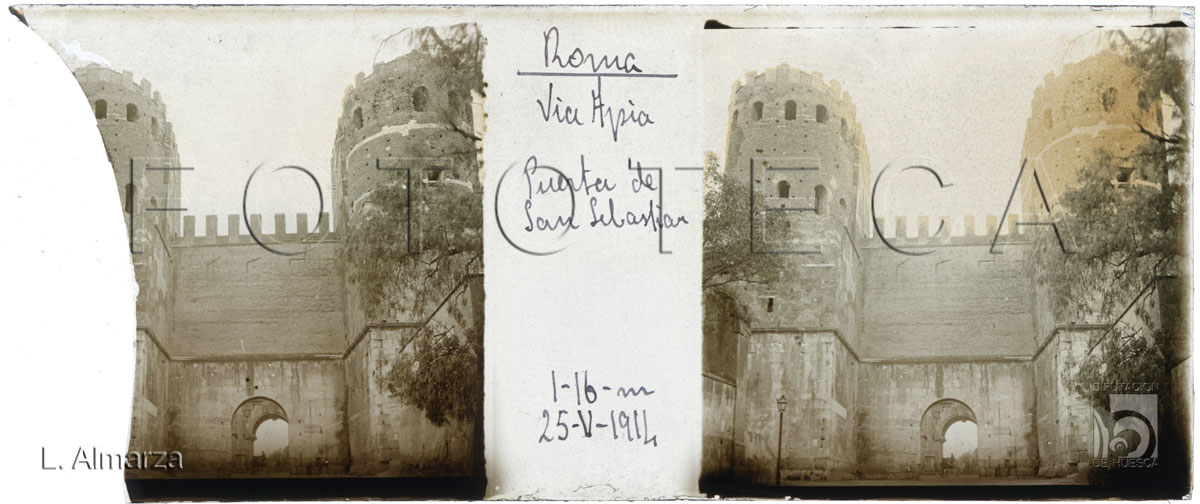 Roma
Via Apia
Puerta de
San Sebastian
1-16-m
25-V-1914
FOTOTECA
L. Almarza
DIPUTACION
DE HUESCA